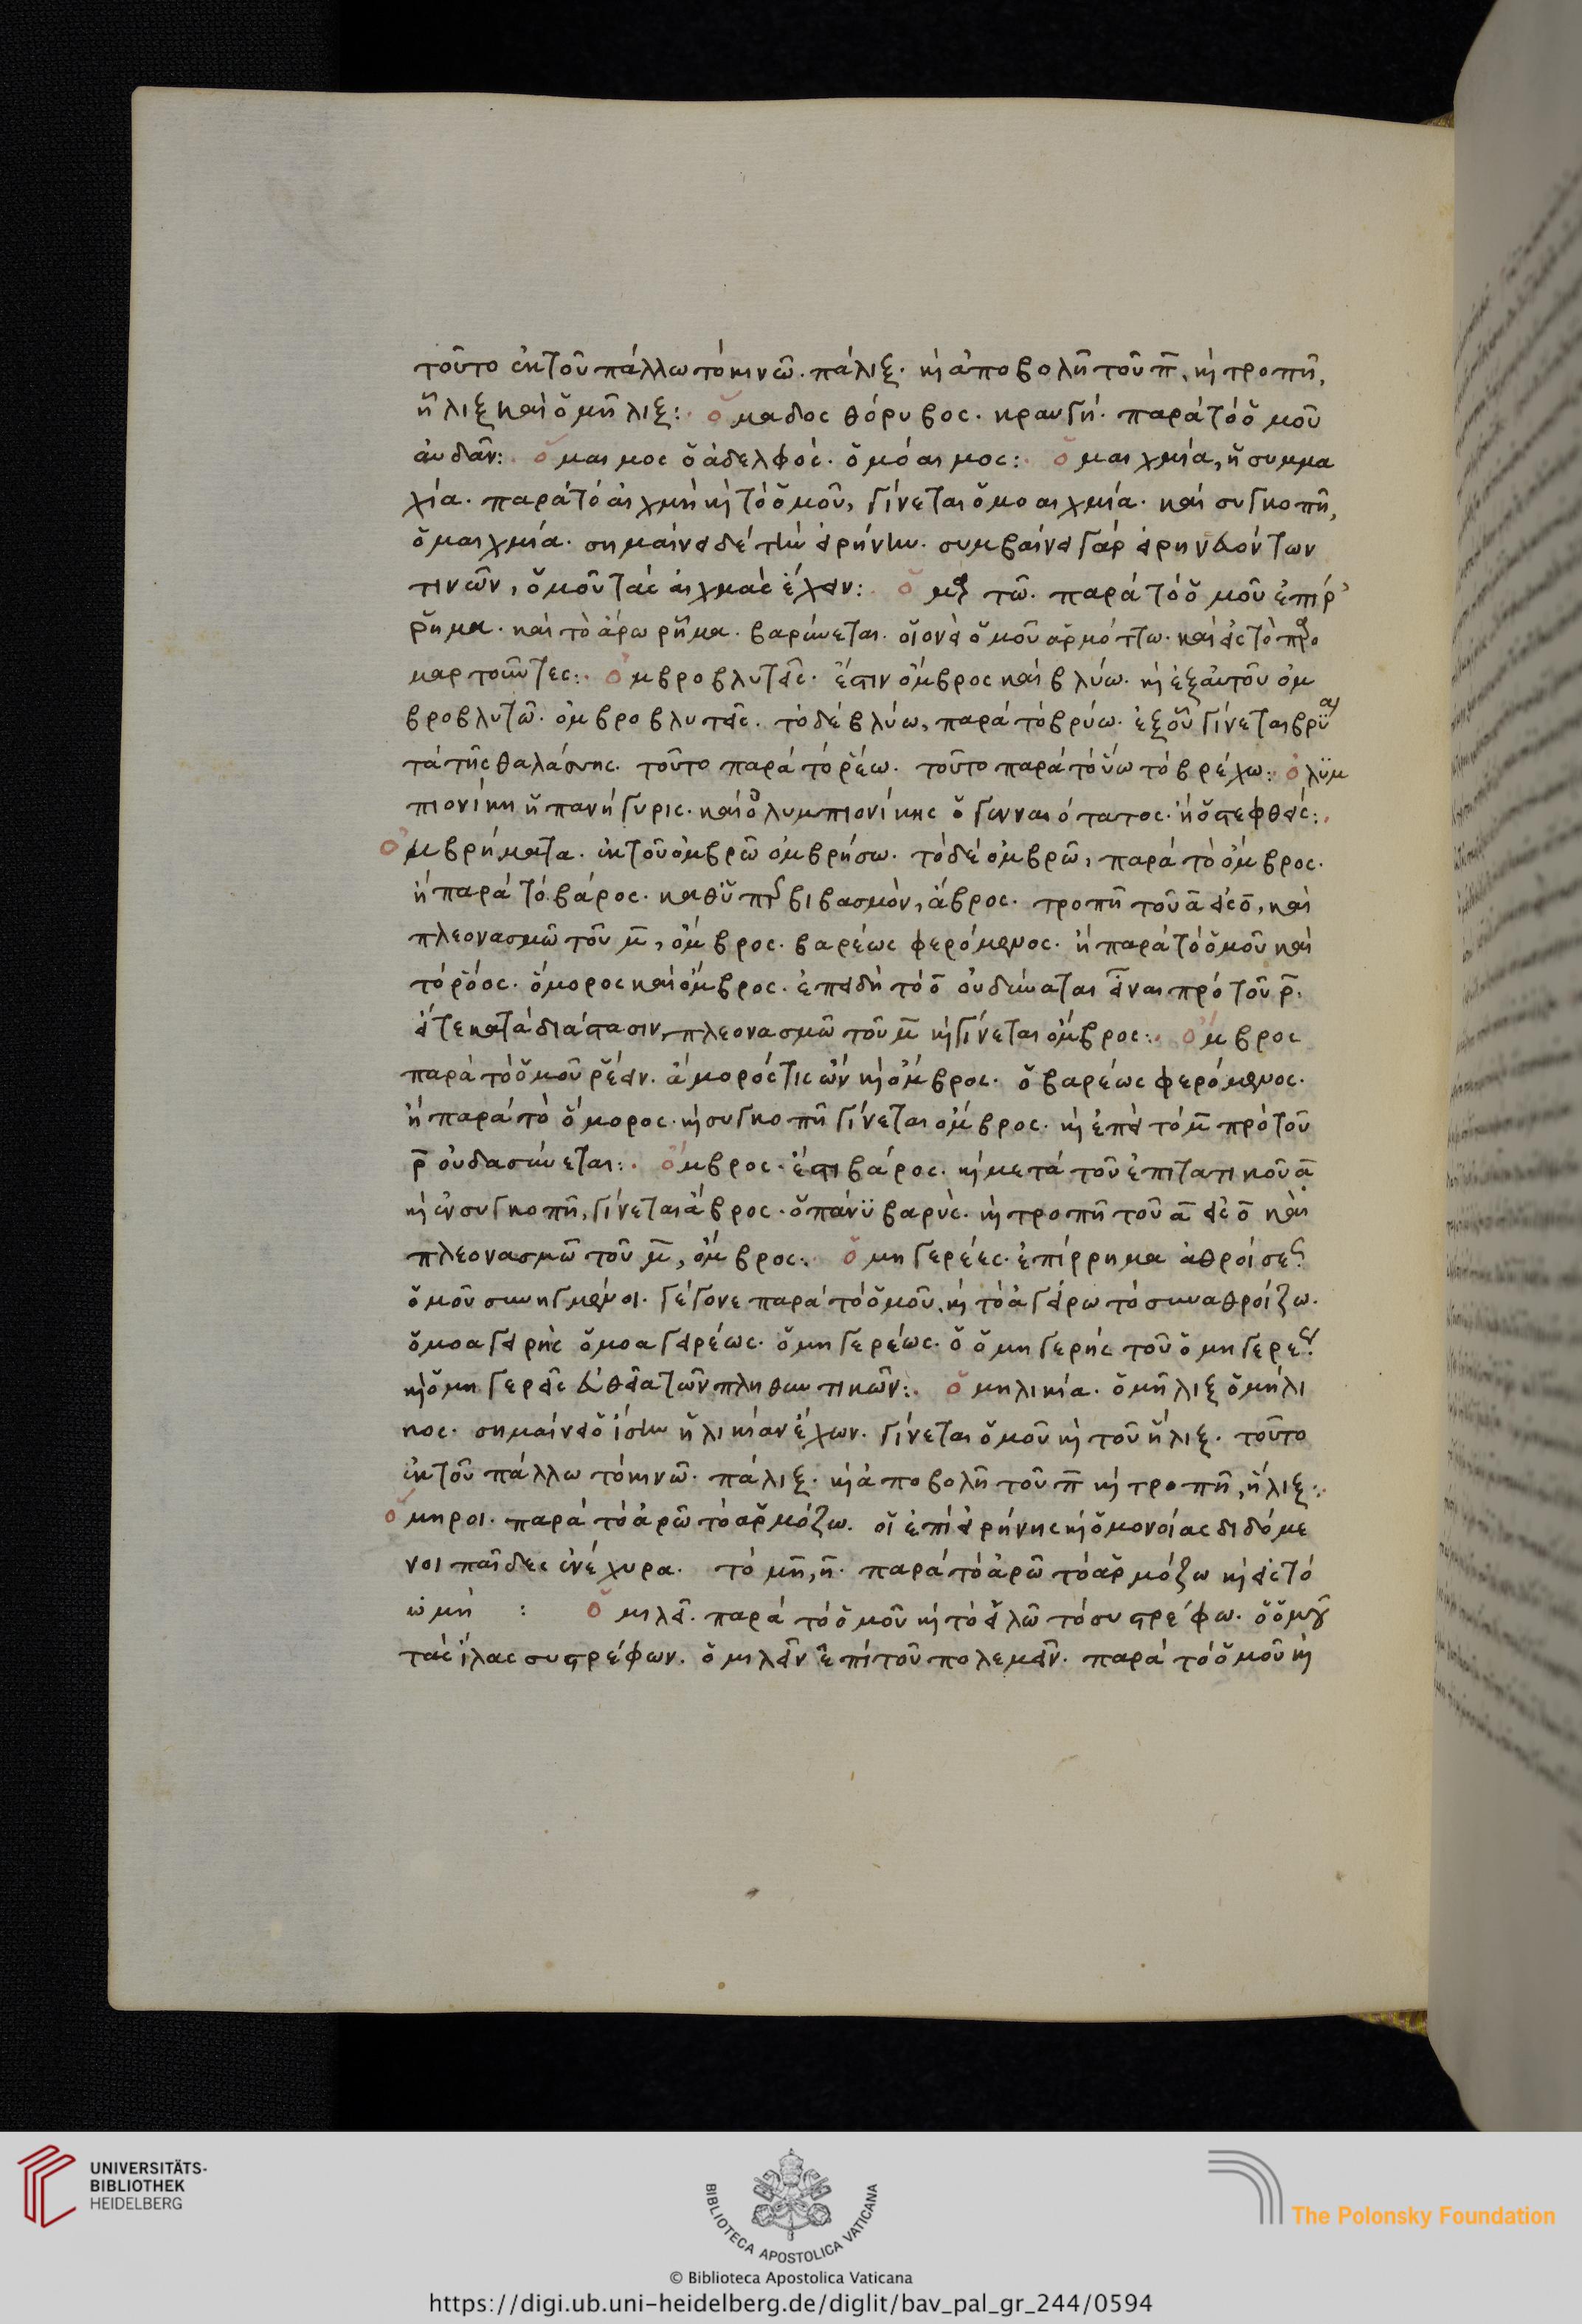 τοῦτο ἐκ τοῦ πάλλω τὸ κινῶ. πάλιξ. κὶ ἀποβολῆ τοῦ π̄, κὶ τροπῆ,
ἧλιξ καὶ ὁμῆλιξ: ὅμαδος θόρυβος. κραυγή. παρὰ τὸ ὁμοῦ
αὐδᾶν: ὅμαιμος ὁ ἀδελφός. ὁμόαιμος: ὁμαιχμία, ἡ συμμα
χία. παρὰ τὸ αἰχμὴ κὶ τὸ ὁμοῦ, γίνεται ὁμοαιχμία. καὶ συγκοπῆ,
ὁμαιχμία. σημαίνει δὲ τὴν εἰρήνην. συμβαίνει γὰρ εἰρηνευόντων
τινῶν, ὁμοῦ τὰς αἰχμὰς ἔχειν: ὁμαρτῶ. παρὰ τὸ ὁμοῦ ἐπίρ
ρημα. καὶ τὸ ἄρω ρῆμα. βαρύνεται. οἱονεὶ ὁμοῦ ἁρμόττω. καὶ εἰς τὸ προ
μαρτοῦντες: ὀμβροβλυτεῖς. ἔστιν ὄμβρος καὶ βλύω. κὶ ἐξ αὐτοῦ ὀμ
βροβλυτῶ. ὀμβροβλυτεῖς. τὸ δὲ βλύω, παρὰ τὸ βρύω. ἐξ οὗ γίνεται βρύα
τὰ τῆς θαλάσσης. τοῦτο παρὰ τὸ ῥέω. τοῦτο παρὰ τὸ ὕω τὸ βρέχω: ὀλυμ
πιονίκη ἡ πανήγυρις. καὶ ὀλυμπιονίκης ὁ γενναιότατος. ἢ ὁ στεφθείς:
ὀμβρήματα. ἐκ τοῦ ὀμβρῶ ὀμβρήσω. τὸ δὲ ὀμβρῶ, παρὰ τὸ ὄμβρος.
ἢ παρὰ τὸ βάρος. καθ' ὑπερβιβασμὸν, ἄβρος. τροπῆ τοῦ ᾱ εἰς ο̄, καὶ
πλεονασμῶ τοῦ μ̄, ὄμβρος. βαρέως φερόμενος. ἢ παρὰ τὸ ὁμοῦ καὶ
τὸ ῥόος. ὅμορος καὶ ὄμβρος. ἐπειδὴ τὸ ο̄ οὐ δύναται εἶναι πρὸ τοῦ ρ̄.
εἴτε κατὰ διάστασιν, πλεονασμῶ τοῦ μ̄ κὶ γίνεται ὄμβρος: ὄμβρος
παρὰ τὸ ὁμοῦ ῥέειν. ὅμορός τις ὢν κὶ ὄμβρος. ὁ βαρέως φερόμενος.
ἢ παρὰ τὸ ὅμορος. κὶ συγκοπῆ γίνεται ὄμβρος. κὶ ἐπεὶ τὸ μ̄ πρὸ τοῦ
ρ̄ οὐ δασύνεται: ὄμβρος. ἔστι βάρος. κὶ μετὰ τοῦ ἐπιτατικοῦ ᾱ
κὶ ἐν συγκοπῆ, γίνεται ἄβρος. ὁ πάνυ βαρύς. κὶ τροπῆ τοῦ ᾱ εἰς ο̄ καὶ
πλεονασμῶ τοῦ μ̄, ὄμβρος: ὁμηγερέες. ἐπίρρημα ἀθροίσεως
ὁμοῦ συνηγμένοι. γέγονε παρὰ τὸ ὁμοῦ, κὶ τὸ ἀγείρω τὸ συναθροίζω.
ὁμοαγερὴς ὁμοαγερέως. ὁμηγερέως. ὁ ὁμηγερὴς τοῦ ὁμηγερέος
κὶ ὁμηγερεῖς εὐθεῖα τῶν πληθυντικῶν: ὁμηλικία. ὁμῆλιξ ὁμήλι
κος. σημαίνει ὁ ἴσην ἡλικίαν ἔχων. γίνεται ὁμοῦ κὶ τοῦ ἧλιξ. τοῦτο
ἐκ τοῦ πάλλω τὸ κινῶ. πάλιξ. κὶ ἀποβολῆ τοῦ π̄ κὶ τροπῆ, ἧλιξ:
ὅμηροι. παρὰ τὸ ἀρῶ τὸ ἁρμόζω. οἱ ἐπὶ εἰρήνης κὶ ὁμονοίας διδόμε
νοι παῖδες ἐνέχυρα. τὸ μη̄, η̄. παρὰ τὸ ἀρῶ τὸ ἁρμόζω κὶ εἰς τὸ
ὠμή : ὁμιλεῖ. παρὰ τὸ ὁμοῦ κὶ τὸ εἱλῶ τὸ συστρέφω. ὁ ὁμοῦ
τὰς ἴλας συστρέφων. ὁμιλεῖν ἐπὶ τοῦ πολεμεῖν. παρὰ τὸ ὁμοῦ κὶ
UNIVERSITÄTS-
BIBLIOTHEK
HEIDELBERG
BIBLIOTECA APOSTOLICA VATICANA
The Polonsky Foundation
© Biblioteca Apostolica Vaticana
https://digi.ub.uni-heidelberg.de/diglit/bav_pal_gr_244/0594